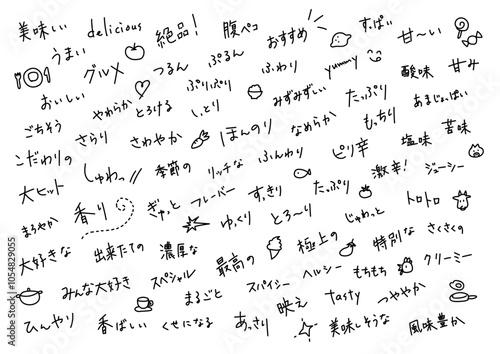 美味い delicious 絶品! 腹ペコ おすすめ すっぱい 甘〜い
うまい グルメ つるん ぷるん ふわり yummy 酸味 甘み
おいしい やわらか とろける ぷりぷり しっとり みずみずしい たっぷり あまじょっぱい
ごちそう さらり さわやか ほんのり なめらか もっちり 塩味 苦味
こだわりの しゅわっ!! 季節の リッチな ふんわり ピリ辛 激辛! ジューシー
大ヒット 香り ぎゅっと フレーバー すっきり たっぷり トロトロ
まろやか ゆっくり とろ〜り じゅわっと さくさくの
大好きな 出来たての 濃厚な 最高の 極上の 特別な
みんな大好き スペシャル スパイシー ヘルシー もちもち クリーミー
まるごと 映え tasty つややか
ひんやり 香ばしい くせになる あっさり 美味しそうな 風味豊か
Adobe Stock | #1054829055